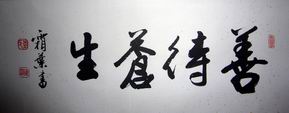 善待蒼生
霜葉書